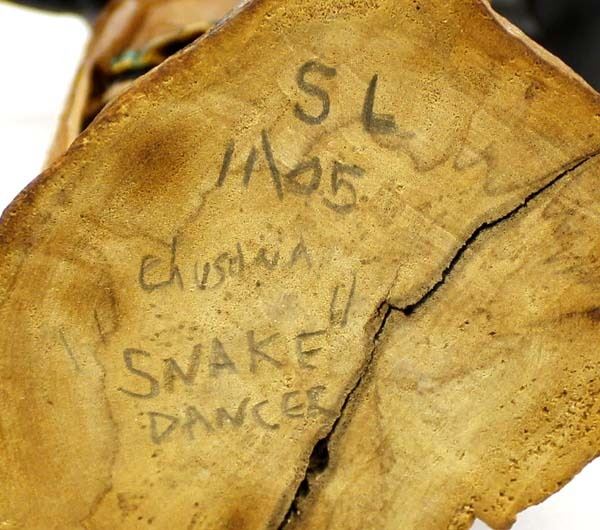 SL
11\05
Chusona
"SNAKE"
DANCER